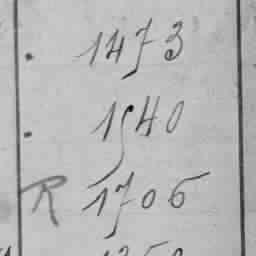 . 1473
. 1540
R 1706